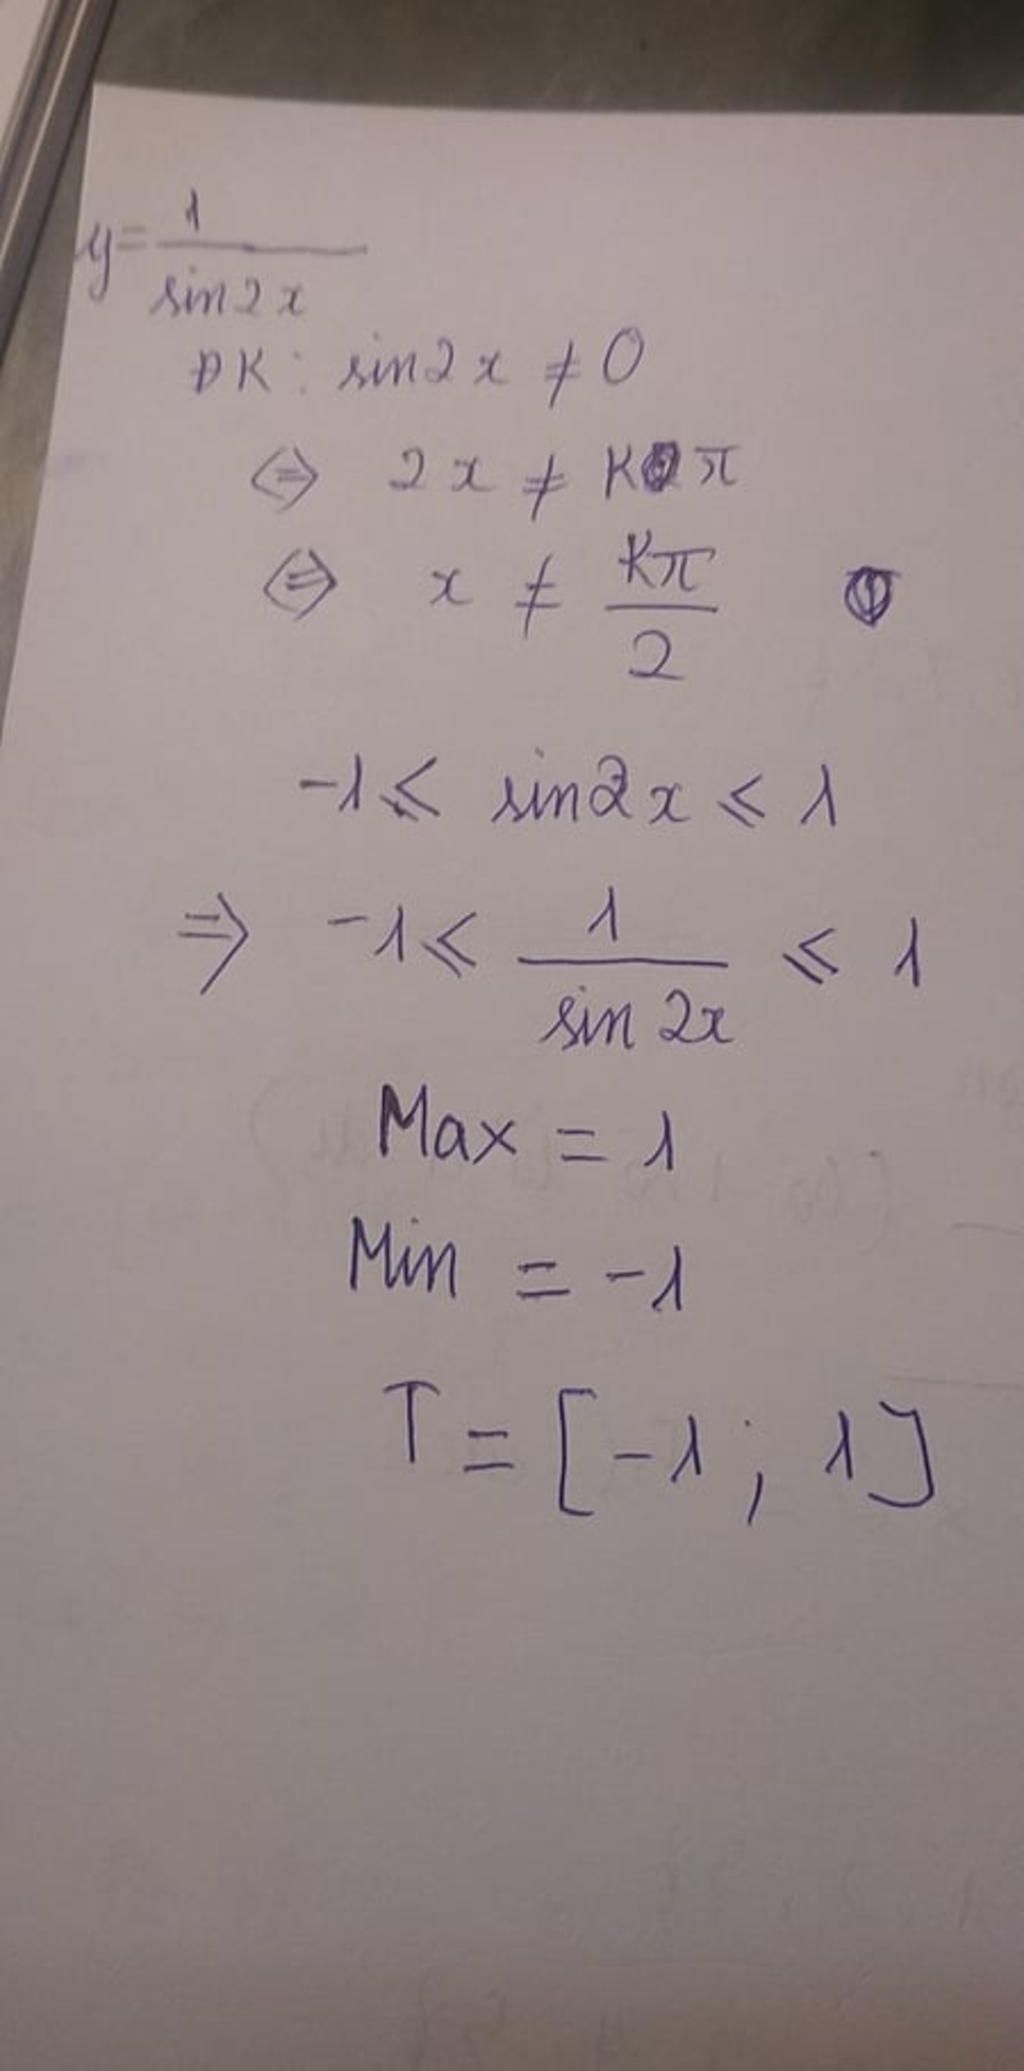 y = 1/sin2x
ĐK: sin2x ≠ 0
⇔ 2x ≠ Kπ
⇔ x ≠ Kπ/2
-1 ≤ sin2x ≤ 1
⇒ -1 ≤ 1/sin 2x ≤ 1
Max = 1
Min = -1
T = [-1; 1]